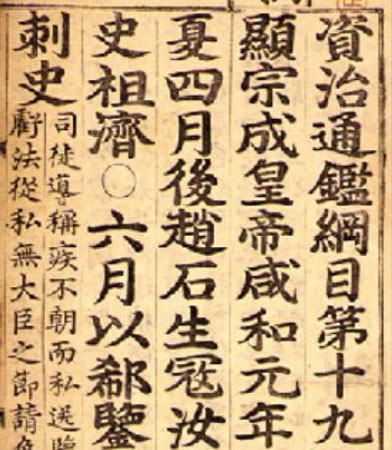 資治通鑑綱目第十九
顯宗成皇帝咸和元年
夏四月後趙石生寇汝
史祖濟○六月以郗鑒
刺史
司徒導稱疾不朝而私送鑒
虧法從私無大臣之節請免